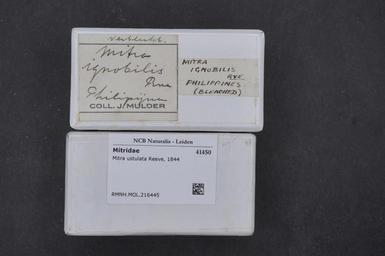 verbleekt.
Mitra
ignobilis
Rve
Philipijnen
COLL. J. MULDER
MITRA
IGNOBILIS
RVE.
PHILIPPINES
(BLEACHED)
NCB Naturalis - Leiden
Mitridae 41450
Mitra ustulata Reeve, 1844
RMNH.MOL.216445